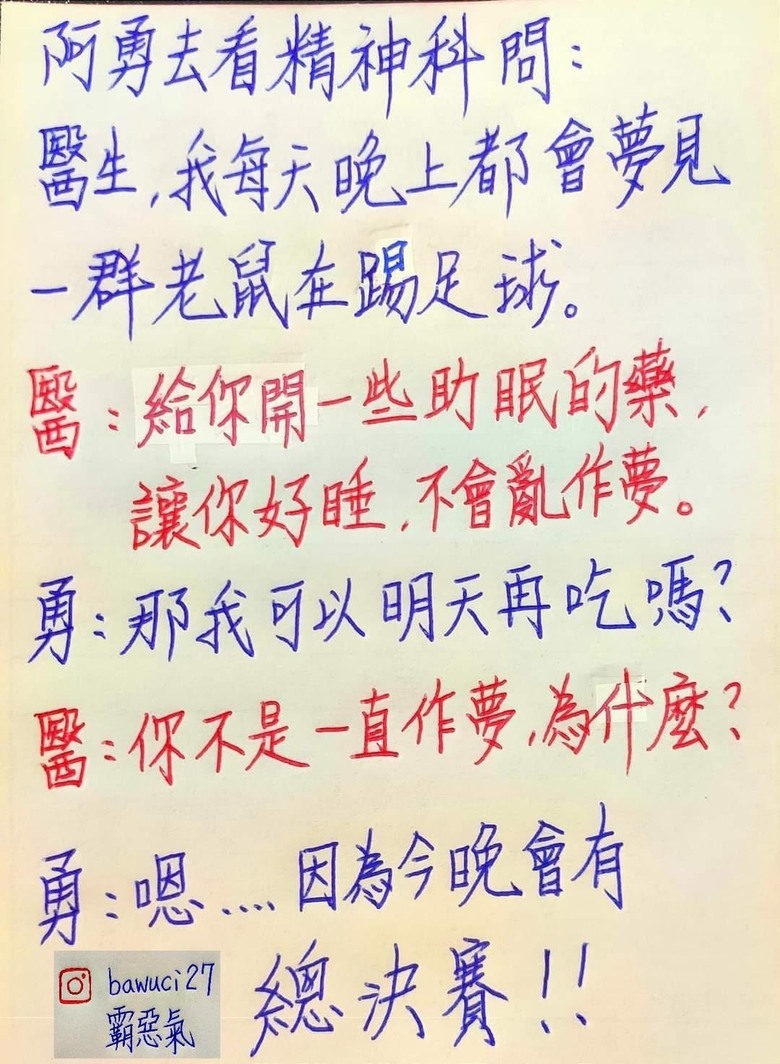 阿勇去看精神科問:
醫生,我每天晚上都會夢見
一群老鼠在踢足球。
醫:給你開一些助眠的藥,
讓你好睡,不會亂作夢。
勇:那我可以明天再吃嗎?
醫:你不是一直作夢,為什麼?
勇:嗯....因為今晚會有
總決賽!!
bawuci27
霸惡氣